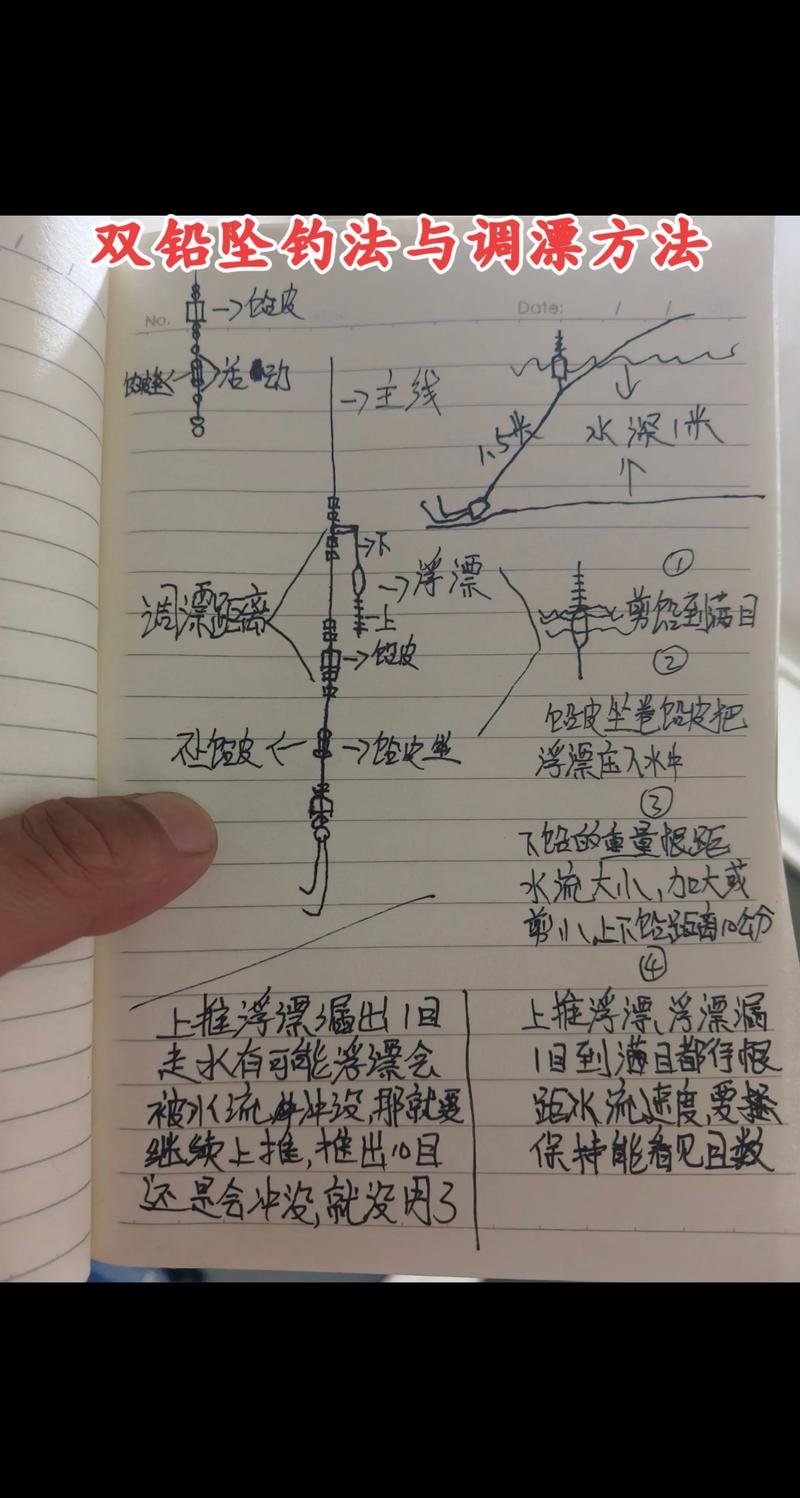 双铅坠钓法与调漂方法
No.
Date: / /
→铅皮
铅皮坐← 活动
→主线
1.5米
水深1米
→下
→浮漂
上
调漂距离
→铅皮
下铅皮← →铅皮坐
①
剪铅到满目
②
铅皮坐卷铅皮把
浮漂压入水中
③
下铅的重量恨距
水流大小,加大或
剪小,上下铅距离10公分
④
上推浮漂漏出1目
走水有可能浮漂会
被水流冲没,那就要
继续上推,推出10目
还是会冲没,就没用了
上推浮漂、浮漂漏
1目到满目都行恨
距水流速度,要
保持能看见目数